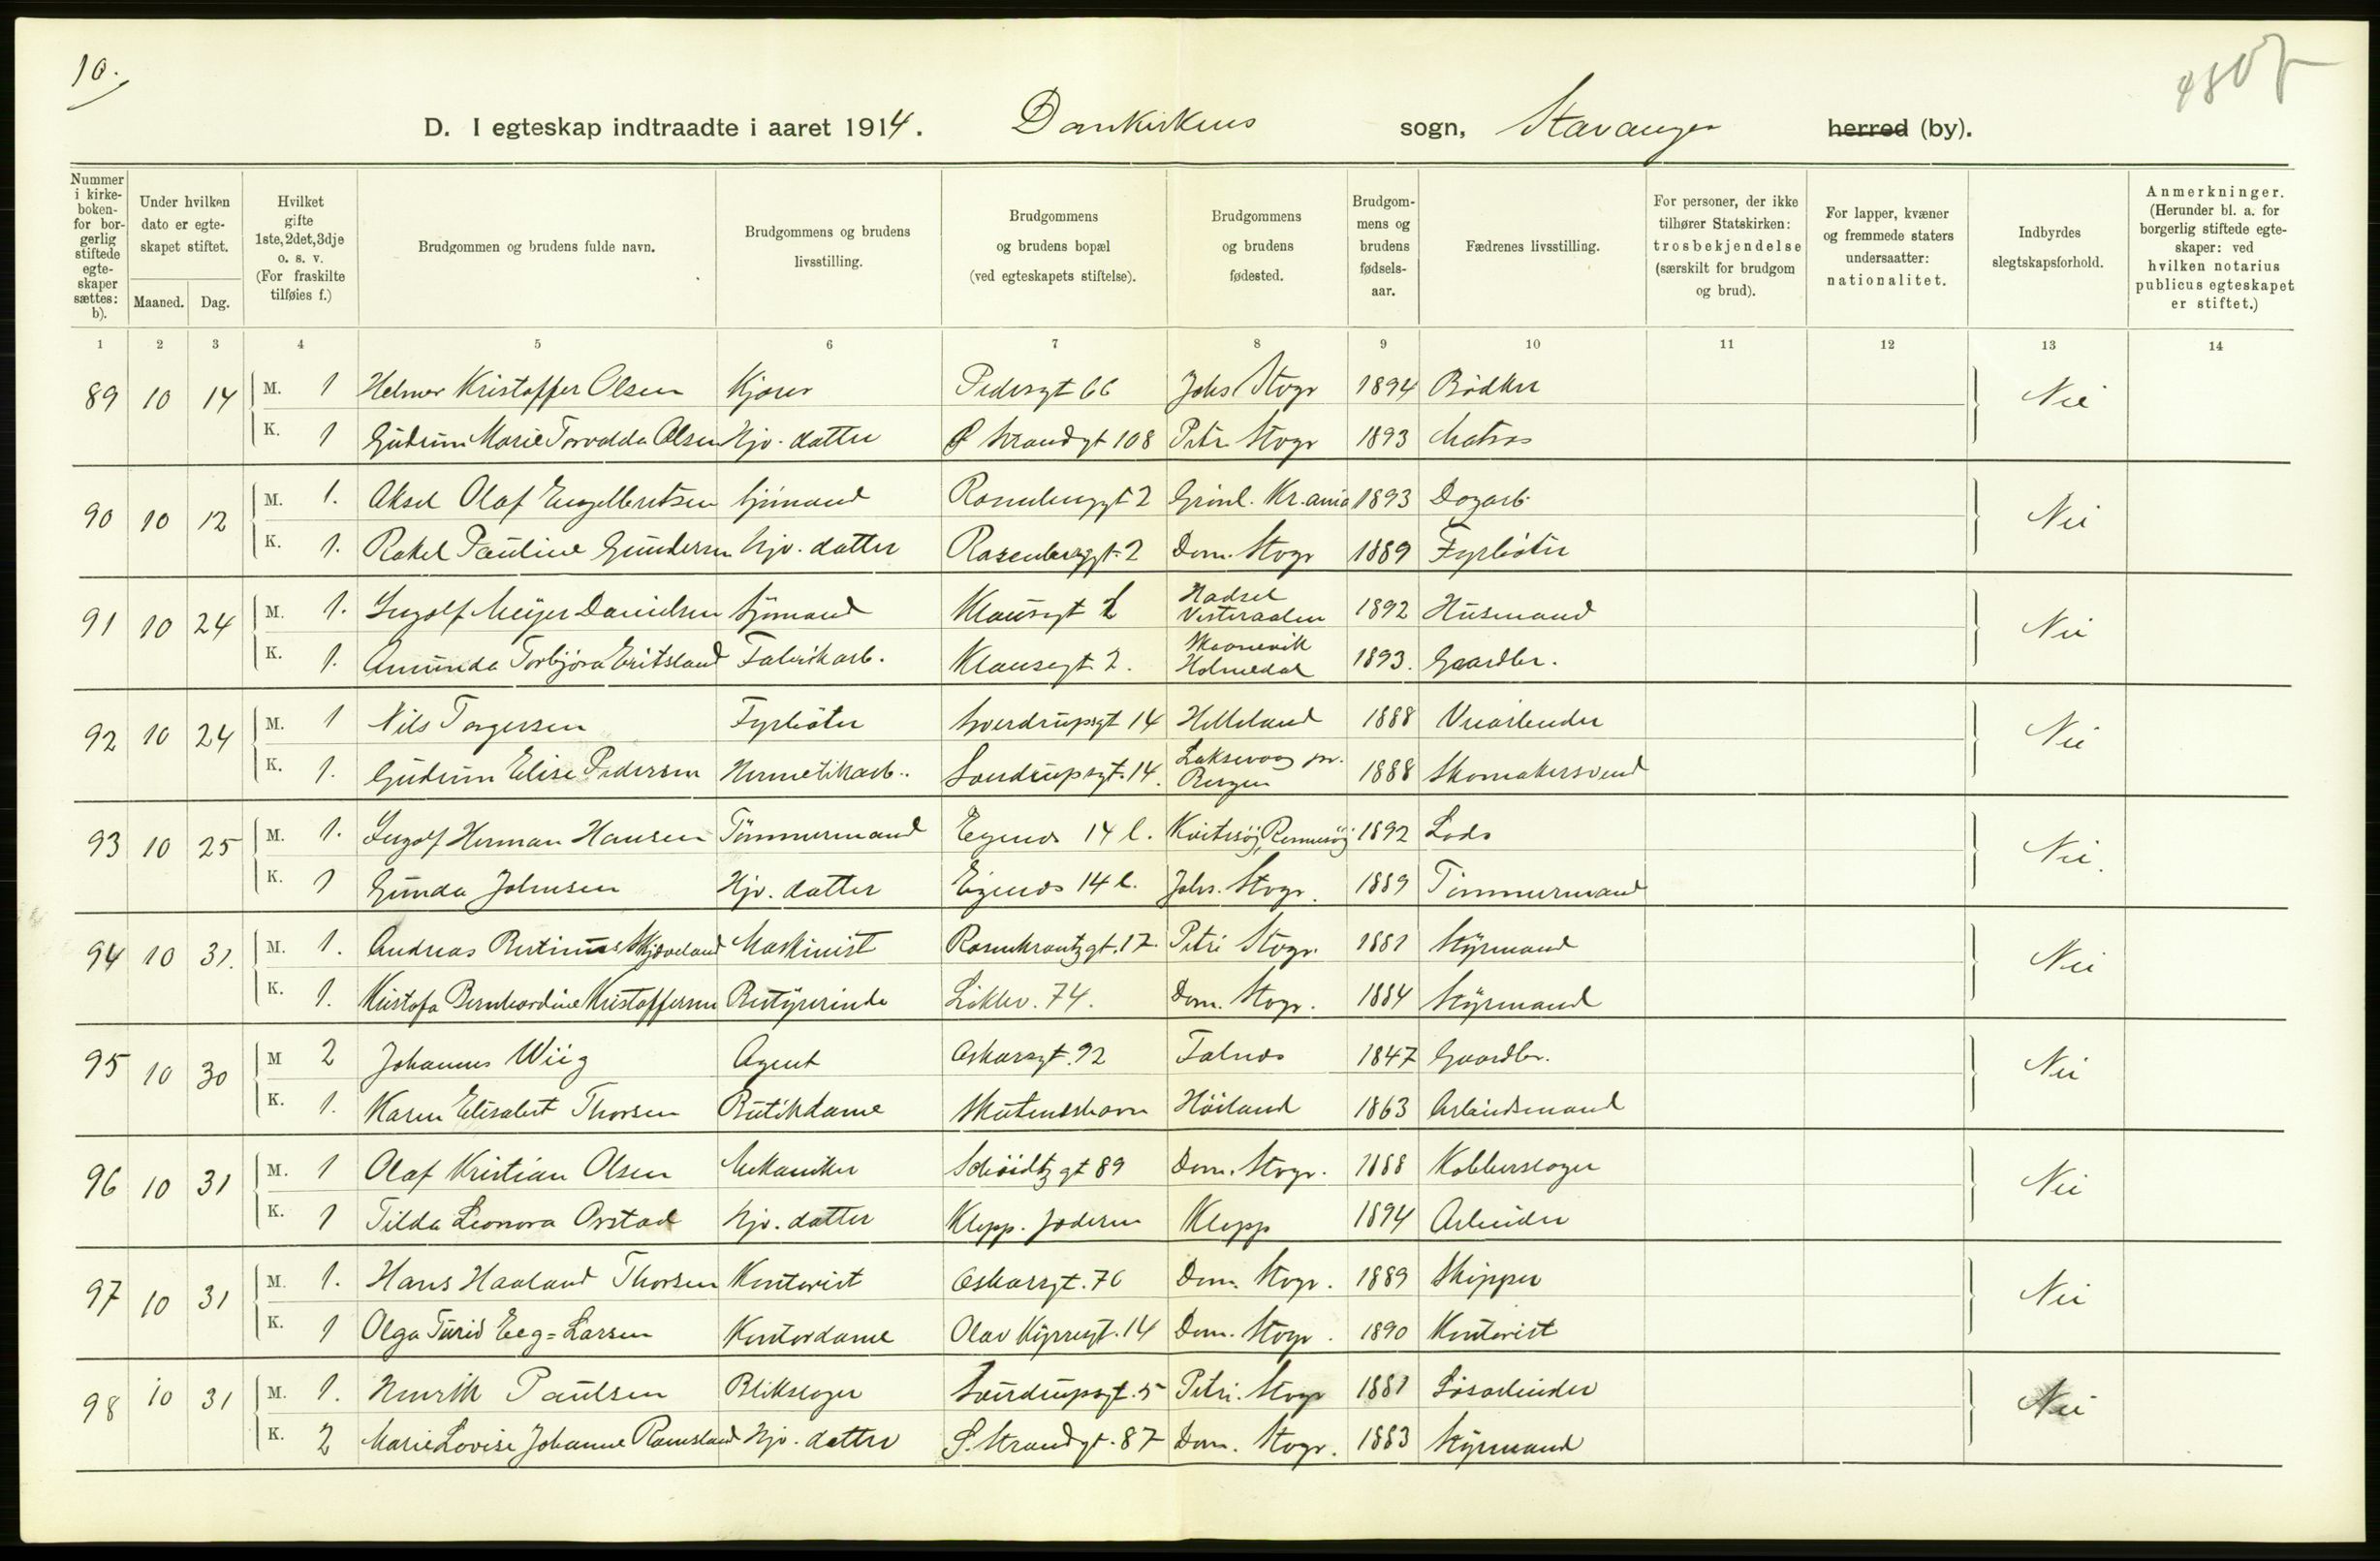 10.
D. I egteskap indtraadte i aaret 1914. Domkirkens sogn, Stavanger herred (by).
Nummer i kirke-boken- for bor-gerlig stiftede egte-skaper sættes: b). | Under hvilken dato er egte-skapet stiftet. Maaned. Dag. | Hvilket gifte 1ste, 2det, 3dje o. s. v. (For fraskilte tilføies f.) | Brudgommen og brudens fulde navn. | Brudgommens og brudens livsstilling. | Brudgommens og brudens bopæl (ved egteskapets stiftelse). | Brudgommens og brudens fødested. | Brudgom-mens og brudens fødsels-aar. | Fædrenes livsstilling. | For personer, der ikke tilhører Statskirken: trosbekjendelse (særskilt for brudgom og brud). | For lapper, kvæner og fremmede staters undersaatter: nationalitet. | Indbyrdes slegtskapsforhold. | Anmerkninger. (Herunder bl. a. for borgerlig stiftede egte-skaper: ved hvilken notarius publicus egteskapet er stiftet.)
1 2 3 4 5 6 7 8 9 10 11 12 13 14
89 10 14 M. 1 Helmer Kristoffer Olsen Kjører Pedersgt 66 Johs Stvgr 1894 Bødker Nei
K. 1 Gudrun Marie Torvalda Olsen Hjv. datter Ø Strandgt 108 Petri Stvgr 1893 Matros
90 10 12 M. 1. Aksel Olaf Engelbretsen Sjömand Rosenberggt 2 Grönl. Kr.ania 1893 Dagarb. Nei
K. 1. Rakel Pauline Gundersen Hjv. datter Rosenberggt 2 Dom. Stvgr 1889 Fyrböter
91 10 24 M. 1. Ingolf Meyer Danielsen Sjömand Klausegt 2 Hadsel Vesteraalen 1892 Husmand Nei
K. 1. Amunda Torbjora Eritsland Fabrikarb. Klausegt 2. Skaanevik Holmedal 1893. Gaardbr.
92 10 24 M. 1 Nils Torgersen Fyrböter Sverdrupsgt 14 Helleland 1888 Veiarbeider Nei
K. 1. Gudrun Elise Pedersen Hermetikarb. Sverdrupsgt. 14. Laksevaag pr. Bergen 1888 Skomakersvend
93 10 25 M. 1. Ingolf Herman Hansen Tömmermand Egenes 14 l. Kvitsöj, Rennesöj 1892 Lods Nei.
K. 1 Gunda Johnsen Hjv. datter Egenes 14 l. Johs. Stvgr. 1889 Tömmermand
94 10 31. M. 1. Andreas Bertinius Skjæveland Maskinist Rosenkrantzgt. 17. Petri Stvgr. 1881 Styrmand Nei
K. 1. Kristofa Bernhardine Kristoffersen Bestyrerinde Lökkev. 74. Dom. Stvgr. 1884 Styrmand
95 10 30 M 2 Johannes Wiig Agent Oskarsgt. 92 Falnes 1847 Gaardbr. Nei
K. 1. Karen Elisabet Thorsen Butikdame Skudeneshavn Höiland 1863 Arbeidsmand
96 10 31 M. 1 Olaf Kristian Olsen Mekaniker Schöidtz gt 89 Dom. Stvgr. 1888 Kobberslager Nei
K. 1 Tilda Leonora Orstad Hjv. datter Klepp. Jæderen Klepp 1894 Arbeider
97 10 31 M. 1. Hans Haaland Thorsen Kontorist Oskarsgt. 76 Dom. Stvgr. 1889 Skipper Nei
K. 1 Olga Turid Eeg=Larsen Kontordame Olav Kyrresgt. 14 Dom. Stvgr. 1890 Kontorist
98 10 31 M. 1. Henrik Paulsen Blikslager Sverdrupsgt. 5 Petri. Stvgr 1881 Løsarbeider Nei
K. 2 Marie Lovise Johanne Ramsland Hjv. datter S. Strandgt. 87 Dom. Stvgr. 1883 Styrmand